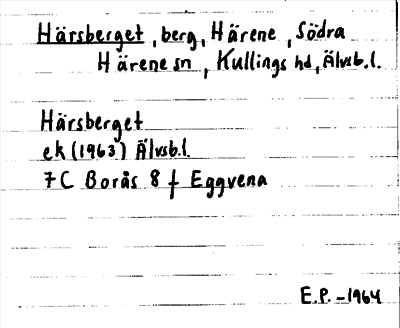 Härsberget, berg, Härene, Södra
Härene sn, Kullings hd, Älvsb.l.
Härsberget
ek (1963) Älvsb.l.
7C Borås 8 f Eggvena
E.P. -1964